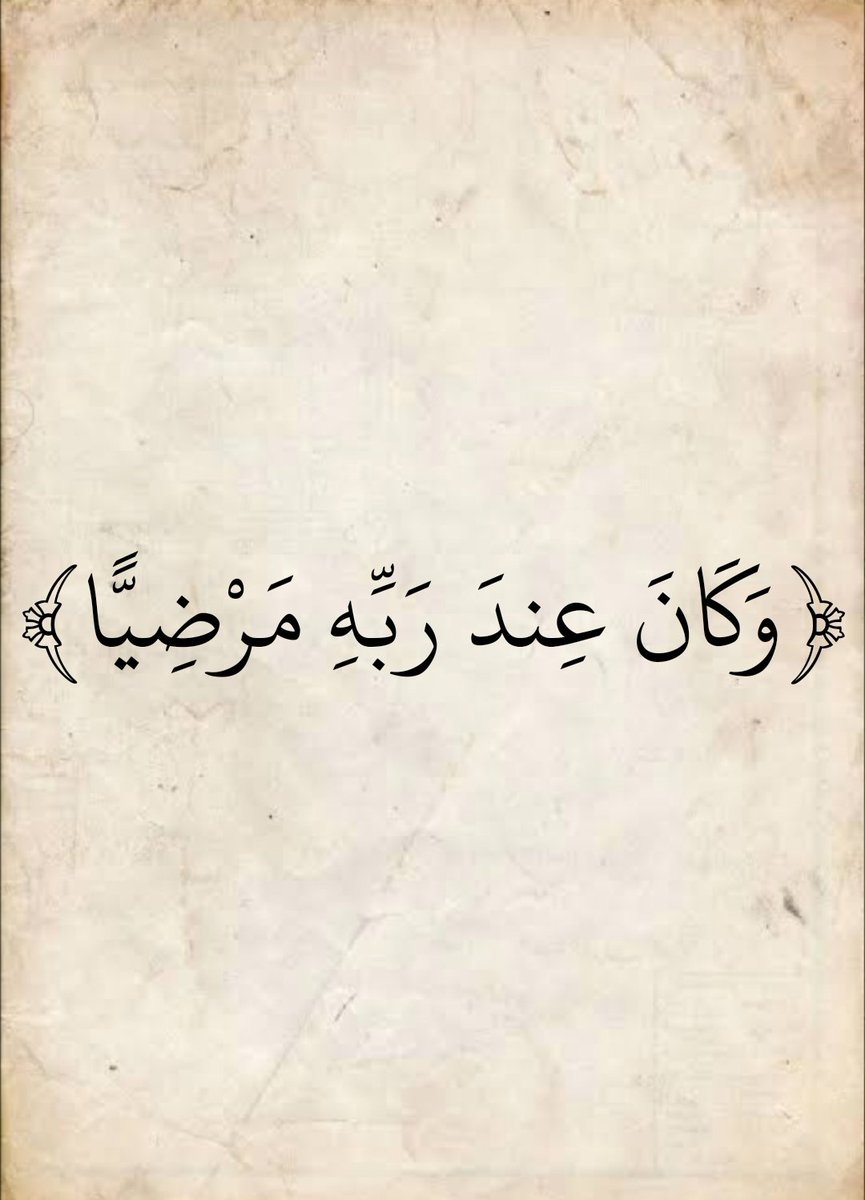 ﴿وَكَانَ عِندَ رَبِّهِ مَرْضِيًّا﴾